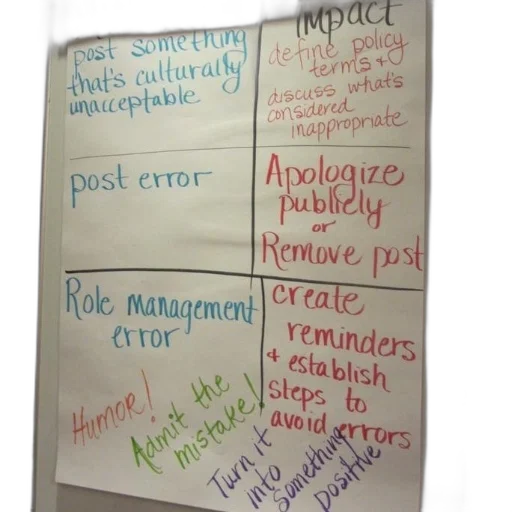 Impact
post something
that's culturally
unacceptable
define policy
terms +
discuss what's
considered
inappropriate
post error
Apologize
publicly
or
Remove post
Role management
error
create
reminders
+ establish
steps to
avoid errors
Humor!
Admit the
mistake!
Turn it
into
something
positive